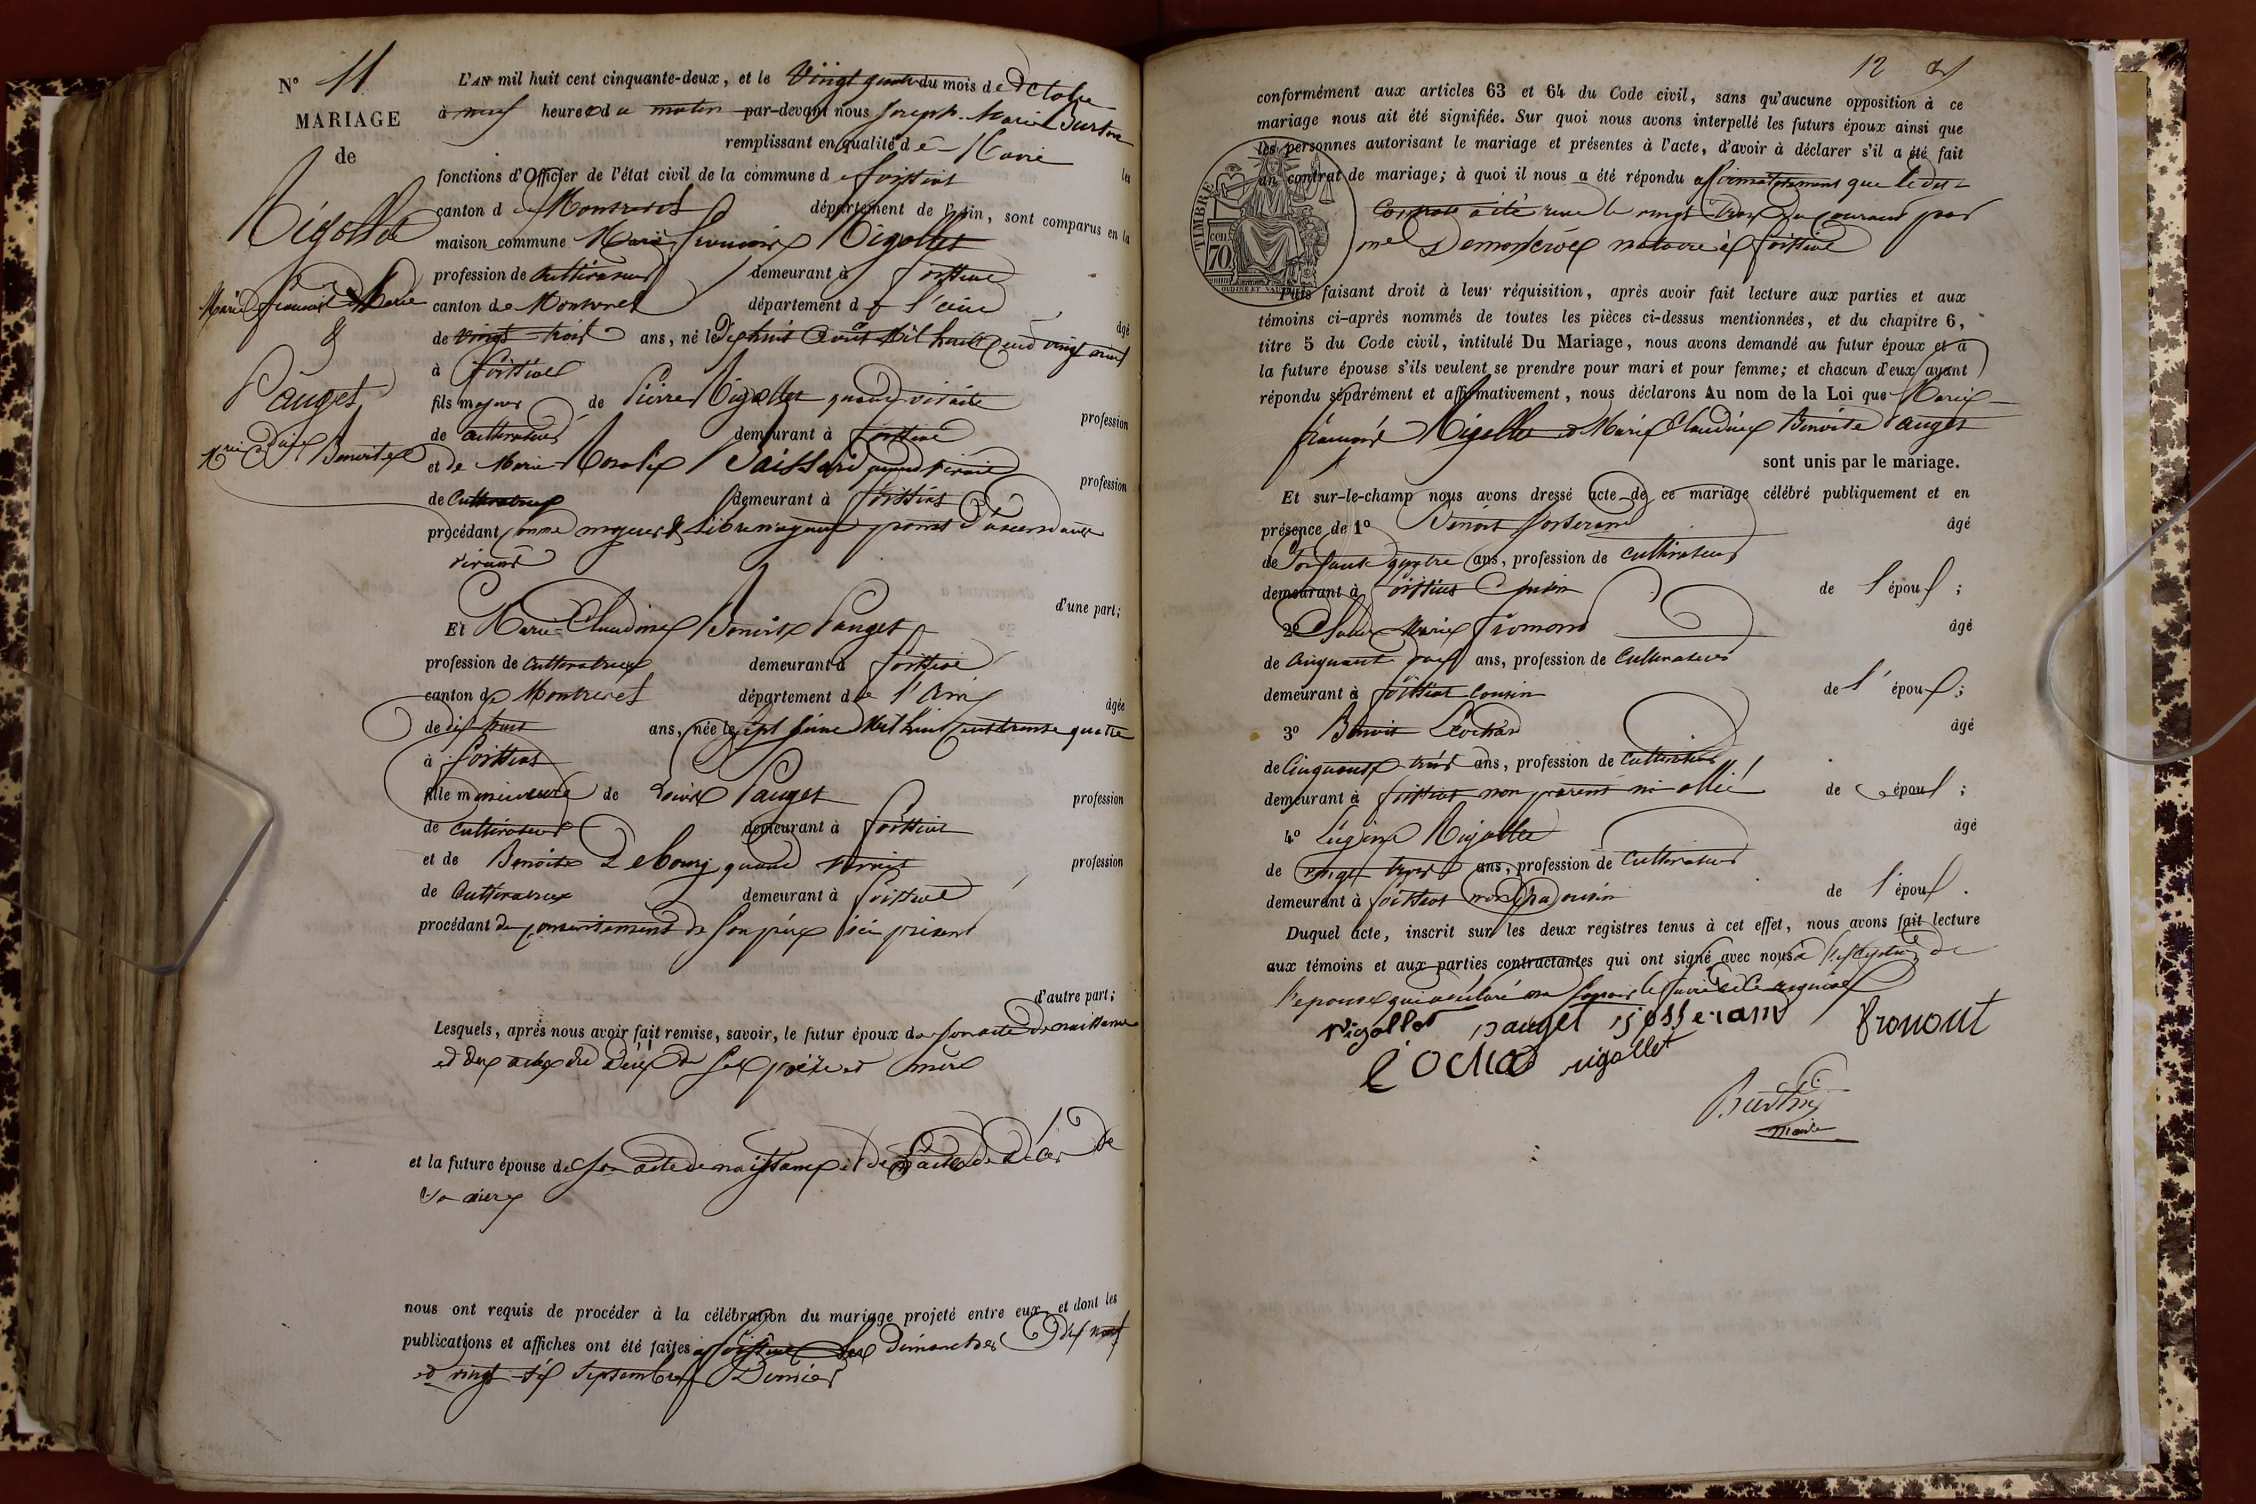 N° 11
MARIAGE
de
Rigollet
Marie françois Marie
&
Pauget
Mrie Benoite
L'AN mil huit cent cinquante-deux, et le Vingt quatre du mois de octobre
à neuf heures du matin par-devant nous Joseph Marie
remplissant en qualité de Maire
les
fonctions d'Officier de l'état civil de la commune de foissiat
canton de Montrevel département de l'Ain, sont comparus en la
maison commune Marie françois Rigollet
profession de Cultivateur demeurant à foissiat
canton de Montrevel département de l'ain
âgé
de vingt-trois ans, né le Dix huit août Mil huit cent vingt neuf
à foissiat
fils majeur de Pierre Rigollet quand vivait
profession
de cultivateur demeurant à foissiat
et de Marie Rosalie quand vivait
profession
de Cultivatrice demeurant à foissiat
procédant comme majeur & libre n'ayant point d'ascendants
vivants
d'une part;
Et Marie Claudine Benoite Pauget
profession de Cultivatrice demeurant à foissiat
canton de Montrevel département de l'Ain
âgée
de dix huit ans, née le sept juin Mil huit cent trente quatre
à foissiat
fille mineure de Louis Pauget
profession
de Cultivateur demeurant à foissiat
et de Benoite Debourg quand vivait
profession
de Cultivatrice demeurant à foissiat
procédant du consentement de son père ici présent
d'autre part;
Lesquels, après nous avoir fait remise, savoir, le futur époux de son acte de naissance
et des actes de décès de ses père et mère
et la future épouse de son acte de naissance et de l'acte de décès de
sa mère
nous ont requis de procéder à la célébration du mariage projeté entre eux, et dont les
publications et affiches ont été faites à foissiat les dimanches dix neuf
et vingt-six septembre Dernier
12
conformément aux articles 63 et 64 du Code civil, sans qu'aucune opposition à ce
mariage nous ait été signifiée. Sur quoi nous avons interpellé les futurs époux ainsi que
les personnes autorisant le mariage et présentes à l'acte, d'avoir à déclarer s'il a été fait
un contrat de mariage; à quoi il nous a été répondu affirmativement que le dit
Contrat a été reçu le vingt trois du courant par
me notaire à foissiat
TIMBRE
70
Puis faisant droit à leur réquisition, après avoir fait lecture aux parties et aux
témoins ci-après nommés de toutes les pièces ci-dessus mentionnées, et du chapitre 6,
titre 5 du Code civil, intitulé Du Mariage, nous avons demandé au futur époux et à
la future épouse s'ils veulent se prendre pour mari et pour femme; et chacun d'eux ayant
répondu séparément et affirmativement, nous déclarons Au nom de la Loi que Marie
françois Rigollet et Marie Claudine Benoite Pauget
sont unis par le mariage.
Et sur-le-champ nous avons dressé acte de ce mariage célébré publiquement et en
présence de 1° Benoit Josserand âgé
de soixante quatre ans, profession de cultivateur
demeurant à foissiat cousin de l'époux;
2° Marie fromont âgé
de Cinquante ans, profession de Cultivateur
demeurant à foissiat cousin de l'époux;
3° Benoit Léochard âgé
de Cinquante trois ans, profession de Cultivateur
demeurant à foissiat non parent ni allié de époux;
4° Eugène Rigollet âgé
de vingt trois ans, profession de Cultivateur
demeurant à foissiat cousin de l'époux.
Duquel acte, inscrit sur les deux registres tenus à cet effet, nous avons fait lecture
aux témoins et aux parties contractantes qui ont signé avec nous à l'exception de
l'épouse qui a déclaré ne savoir le faire de ce requise
Rigollet pauget josserand fromont
rigollet
maire